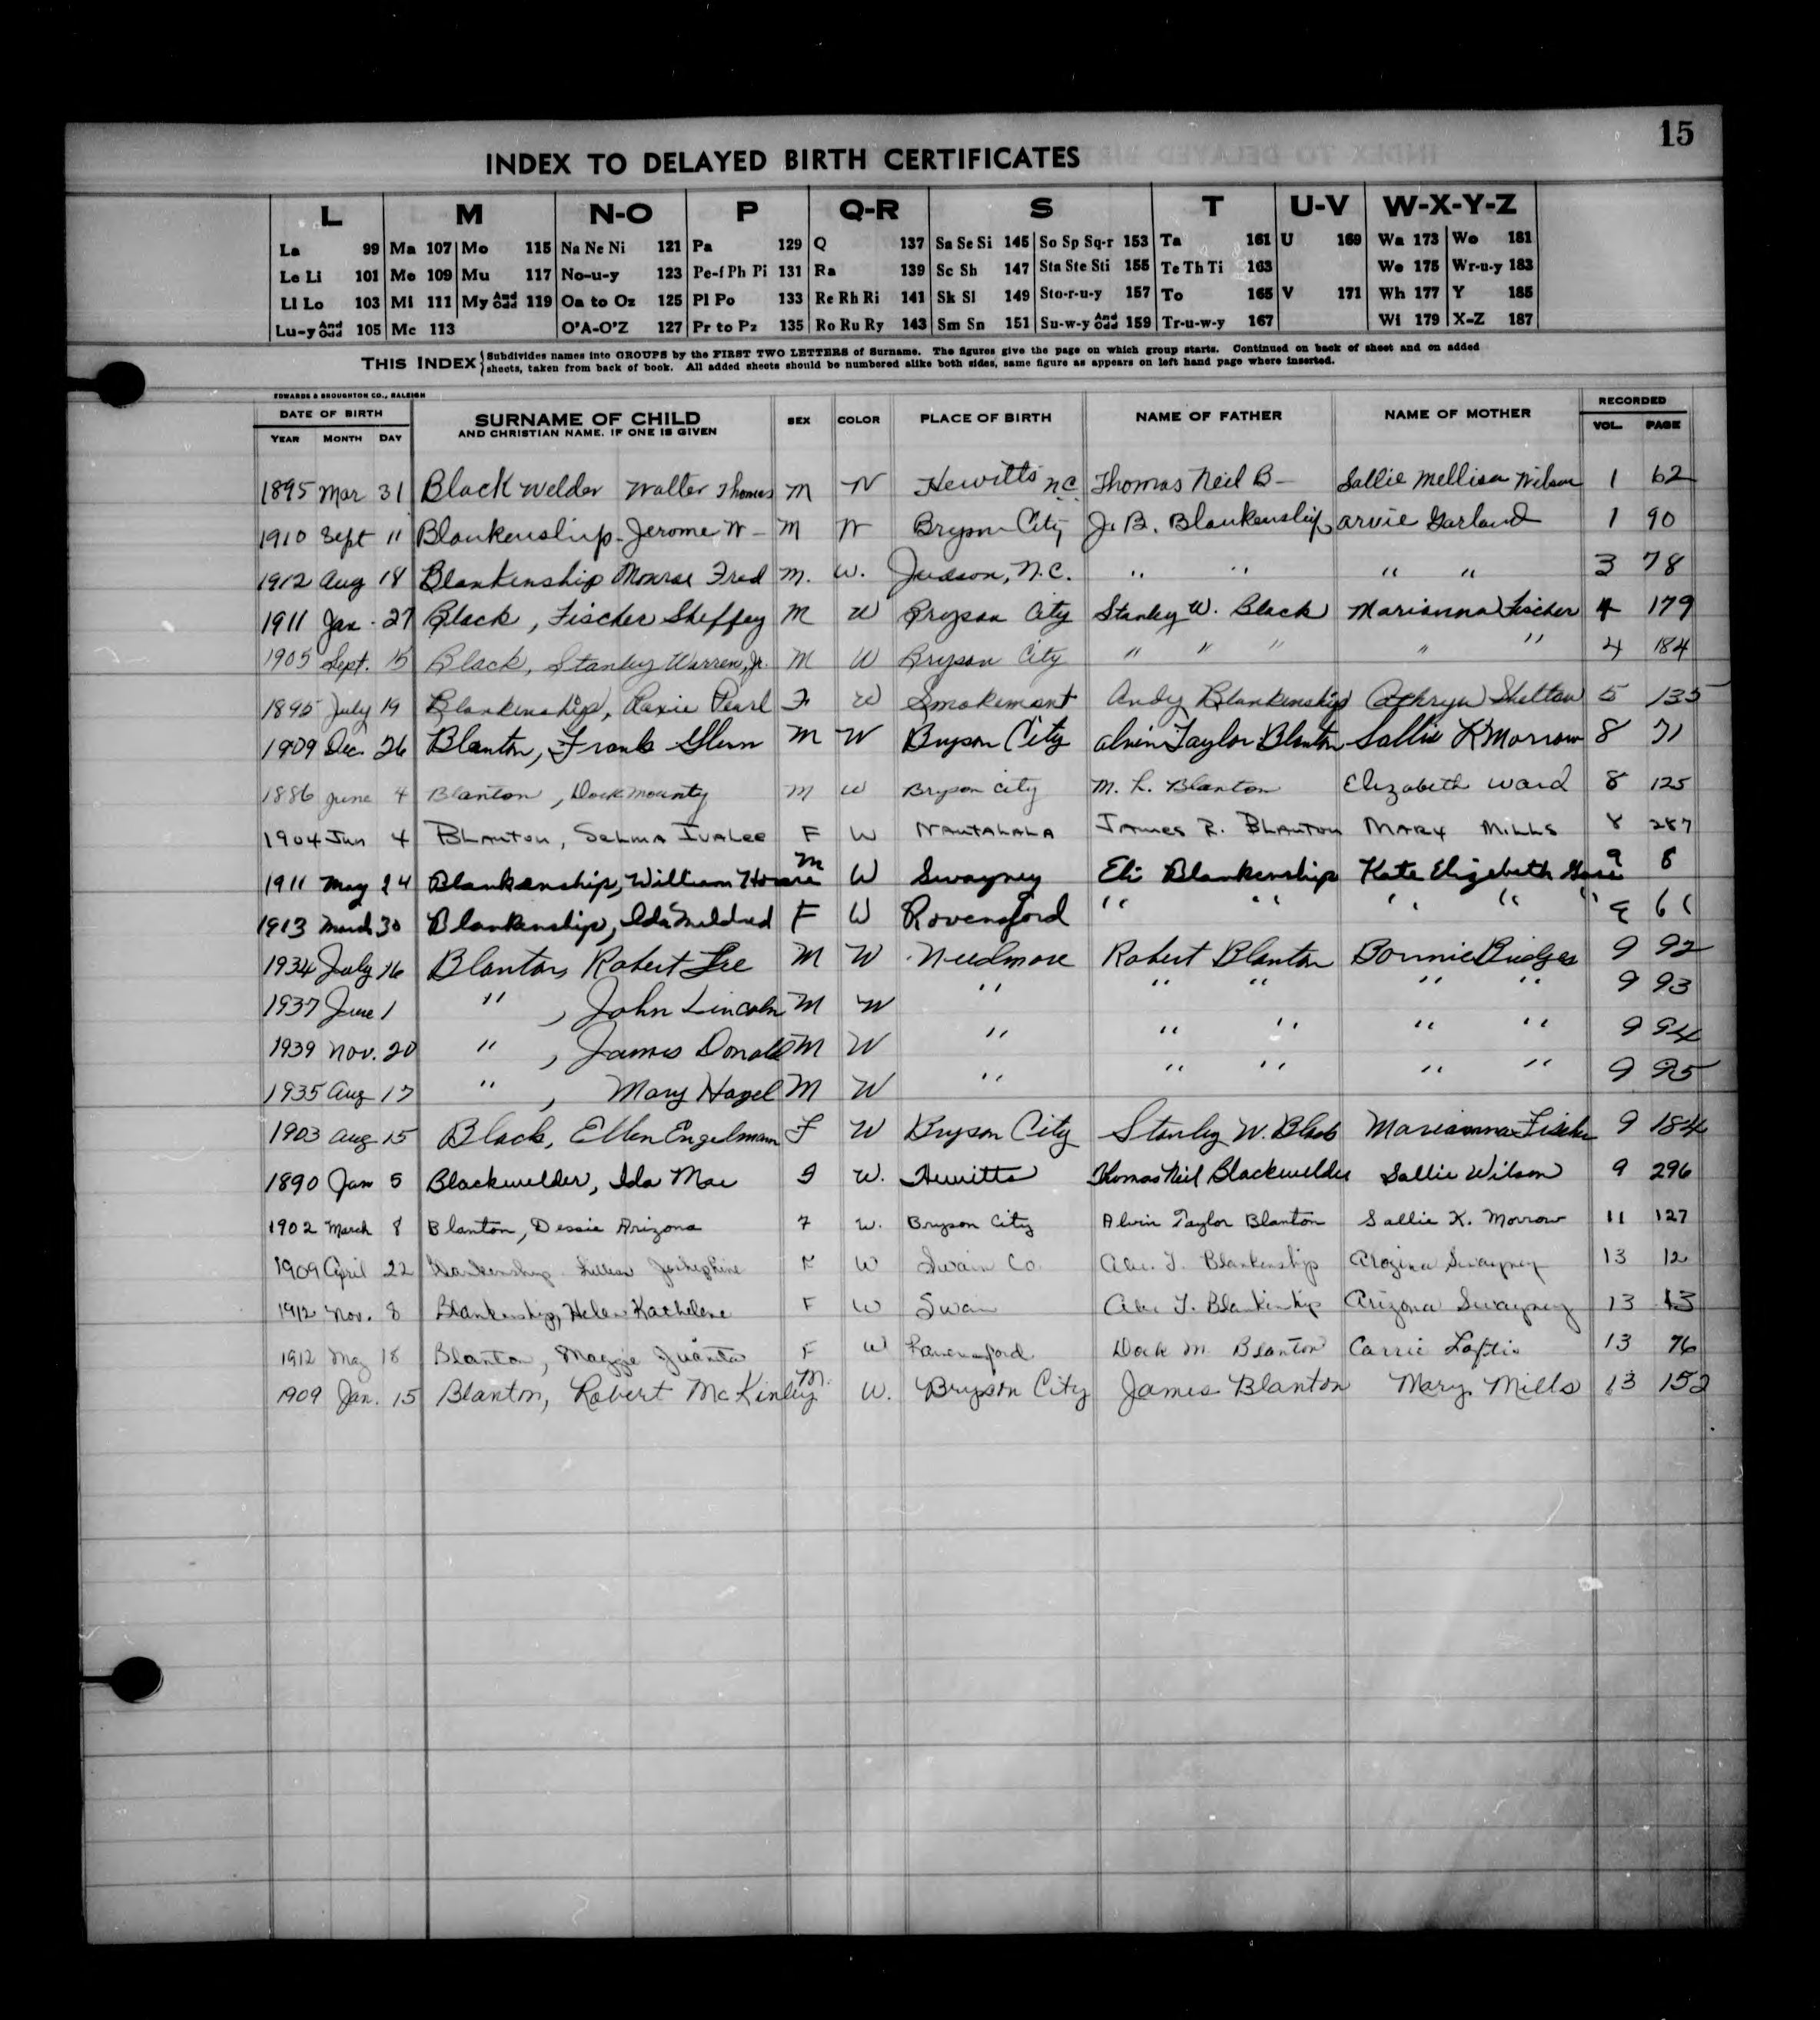 15
INDEX TO DELAYED BIRTH CERTIFICATES
L M N-O P Q-R S T U-V W-X-Y-Z
La 99 Ma 107 Mo 115 Na Ne Ni 121 Pa 129 Q 137 Sa Se Si 145 So Sp Sq-r 153 Ta 161 U 169 Wa 173 Wo 181
Le Li 101 Me 109 Mu 117 No-u-y 123 Pe-f Ph Pi 131 Ra 139 Sc Sh 147 Sta Ste Sti 155 Te Th Ti 163 We 175 Wr-u-y 183
Ll Lo 103 Mi 111 My And Odd 119 Oa to Oz 125 Pl Po 133 Re Rh Ri 141 Sk Sl 149 Sto-r-u-y 157 To 165 V 171 Wh 177 Y 185
Lu-y And Odd 105 Mc 113 O'A-O'Z 127 Pr to Pz 135 Ro Ru Ry 143 Sm Sn 151 Su-w-y And Odd 159 Tr-u-w-y 167 Wi 179 X-Z 187
THIS INDEX { Subdivides names into GROUPS by the FIRST TWO LETTERS of Surname. The figures give the page on which group starts. Continued on back of sheet and on added
sheets, taken from back of book. All added sheets should be numbered alike both sides, same figure as appears on left hand page where inserted.
EDWARDS & BROUGHTON CO., RALEIGH
DATE OF BIRTH SURNAME OF CHILD AND CHRISTIAN NAME, IF ONE IS GIVEN SEX COLOR PLACE OF BIRTH NAME OF FATHER NAME OF MOTHER RECORDED
YEAR MONTH DAY VOL. PAGE
1895 Mar 31 Blackwelder Walter Thomas M W Hewitts N.C. Thomas Neil B- Sallie Mellisa Wilson 1 62
1910 Sept 11 Blankenship - Jerome W - M W Bryson City J. B. Blankenship Arvie Garland 1 90
1912 Aug 18 Blankenship Monroe Fred M. W. Judson, N.C. " " " " 3 78
1911 Jan. 27 Black, Fischer Sheffey M W Bryson City Stanley W. Black Marianna Fischer 4 179
1905 Sept. 15 Black, Stanley Warren, Jr. M W Bryson City " " " " " 4 184
1895 July 19 Blankenship, Roxie Pearl F W Smokemont Andy Blankenship Cathryn Shelton 5 135
1909 Dec. 26 Blanton, Frank Glenn M W Bryson City Alvin Taylor Blanton Sallie K Morrow 8 71
1886 June 4 Blanton, Dock Mounty M W Bryson City M. L. Blanton Elizabeth Ward 8 125
1904 Jun 4 Blanton, Selma Ivalee F W Nantahala James R. Blanton Mary Mills 8 287
1911 May 24 Blankenship, William M W Swayney Eli Blankenship Kate Elizabeth 9 8
1913 March 30 Blankenship, Ida Mildred F W Ravensford " " " " " 9 61
1934 July 16 Blanton, Robert Lee M W Needmore Robert Blanton Bonnie Bridges 9 92
1937 June 1 " , John Lincoln M W " " " " " 9 93
1939 Nov. 20 " , James Donald M W " " " " " 9 94
1935 Aug 17 " , Mary Hazel M W " " " " " 9 95
1903 Aug 15 Black, Ellen Engelmann F W Bryson City Stanley W. Black Marianna Fischer 9 184
1890 Jan 5 Blackwelder, Ida Mae F W. Hewitts Thomas Neil Blackwelder Sallie Wilson 9 296
1902 March 8 Blanton, Dessie Arizona F W. Bryson City Alvin Taylor Blanton Sallie K. Morrow 11 127
1909 April 22 Blankenship Lillian Josephine F W Swain Co. T. Blankenship Swayney 13 12
1912 Nov. 8 Blankenship, Helen Kathelene F W Swain T. Blankinship Arizona Swayney 13 13
1912 May 18 Blanton, Maggie Juanta F W Ravensford Dock M. Blanton Carrie Loftis 13 76
1909 Jan. 15 Blanton, Robert McKinley M. W. Bryson City James Blanton Mary Mills 13 152